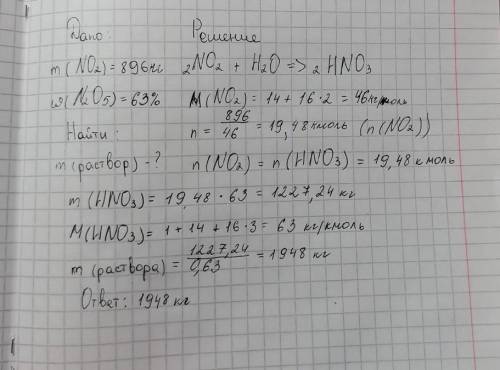 Дано: Решение
m(NO2)=896кг 2NO2 + H2O => 2HNO3
ω(N2O5)=63% M(NO2)=14+16·2=46кг/кмоль
Найти: n=896/46=19,48кмоль (n(NO2))
m(раствор)-? n(NO2)=n(HNO3)=19,48кмоль
m(HNO3)=19,48·63=1227,24кг
M(HNO3)=1+14+16·3=63 кг/кмоль
m(раствора)=1227,24/0,63=1948 кг
Ответ: 1948кг